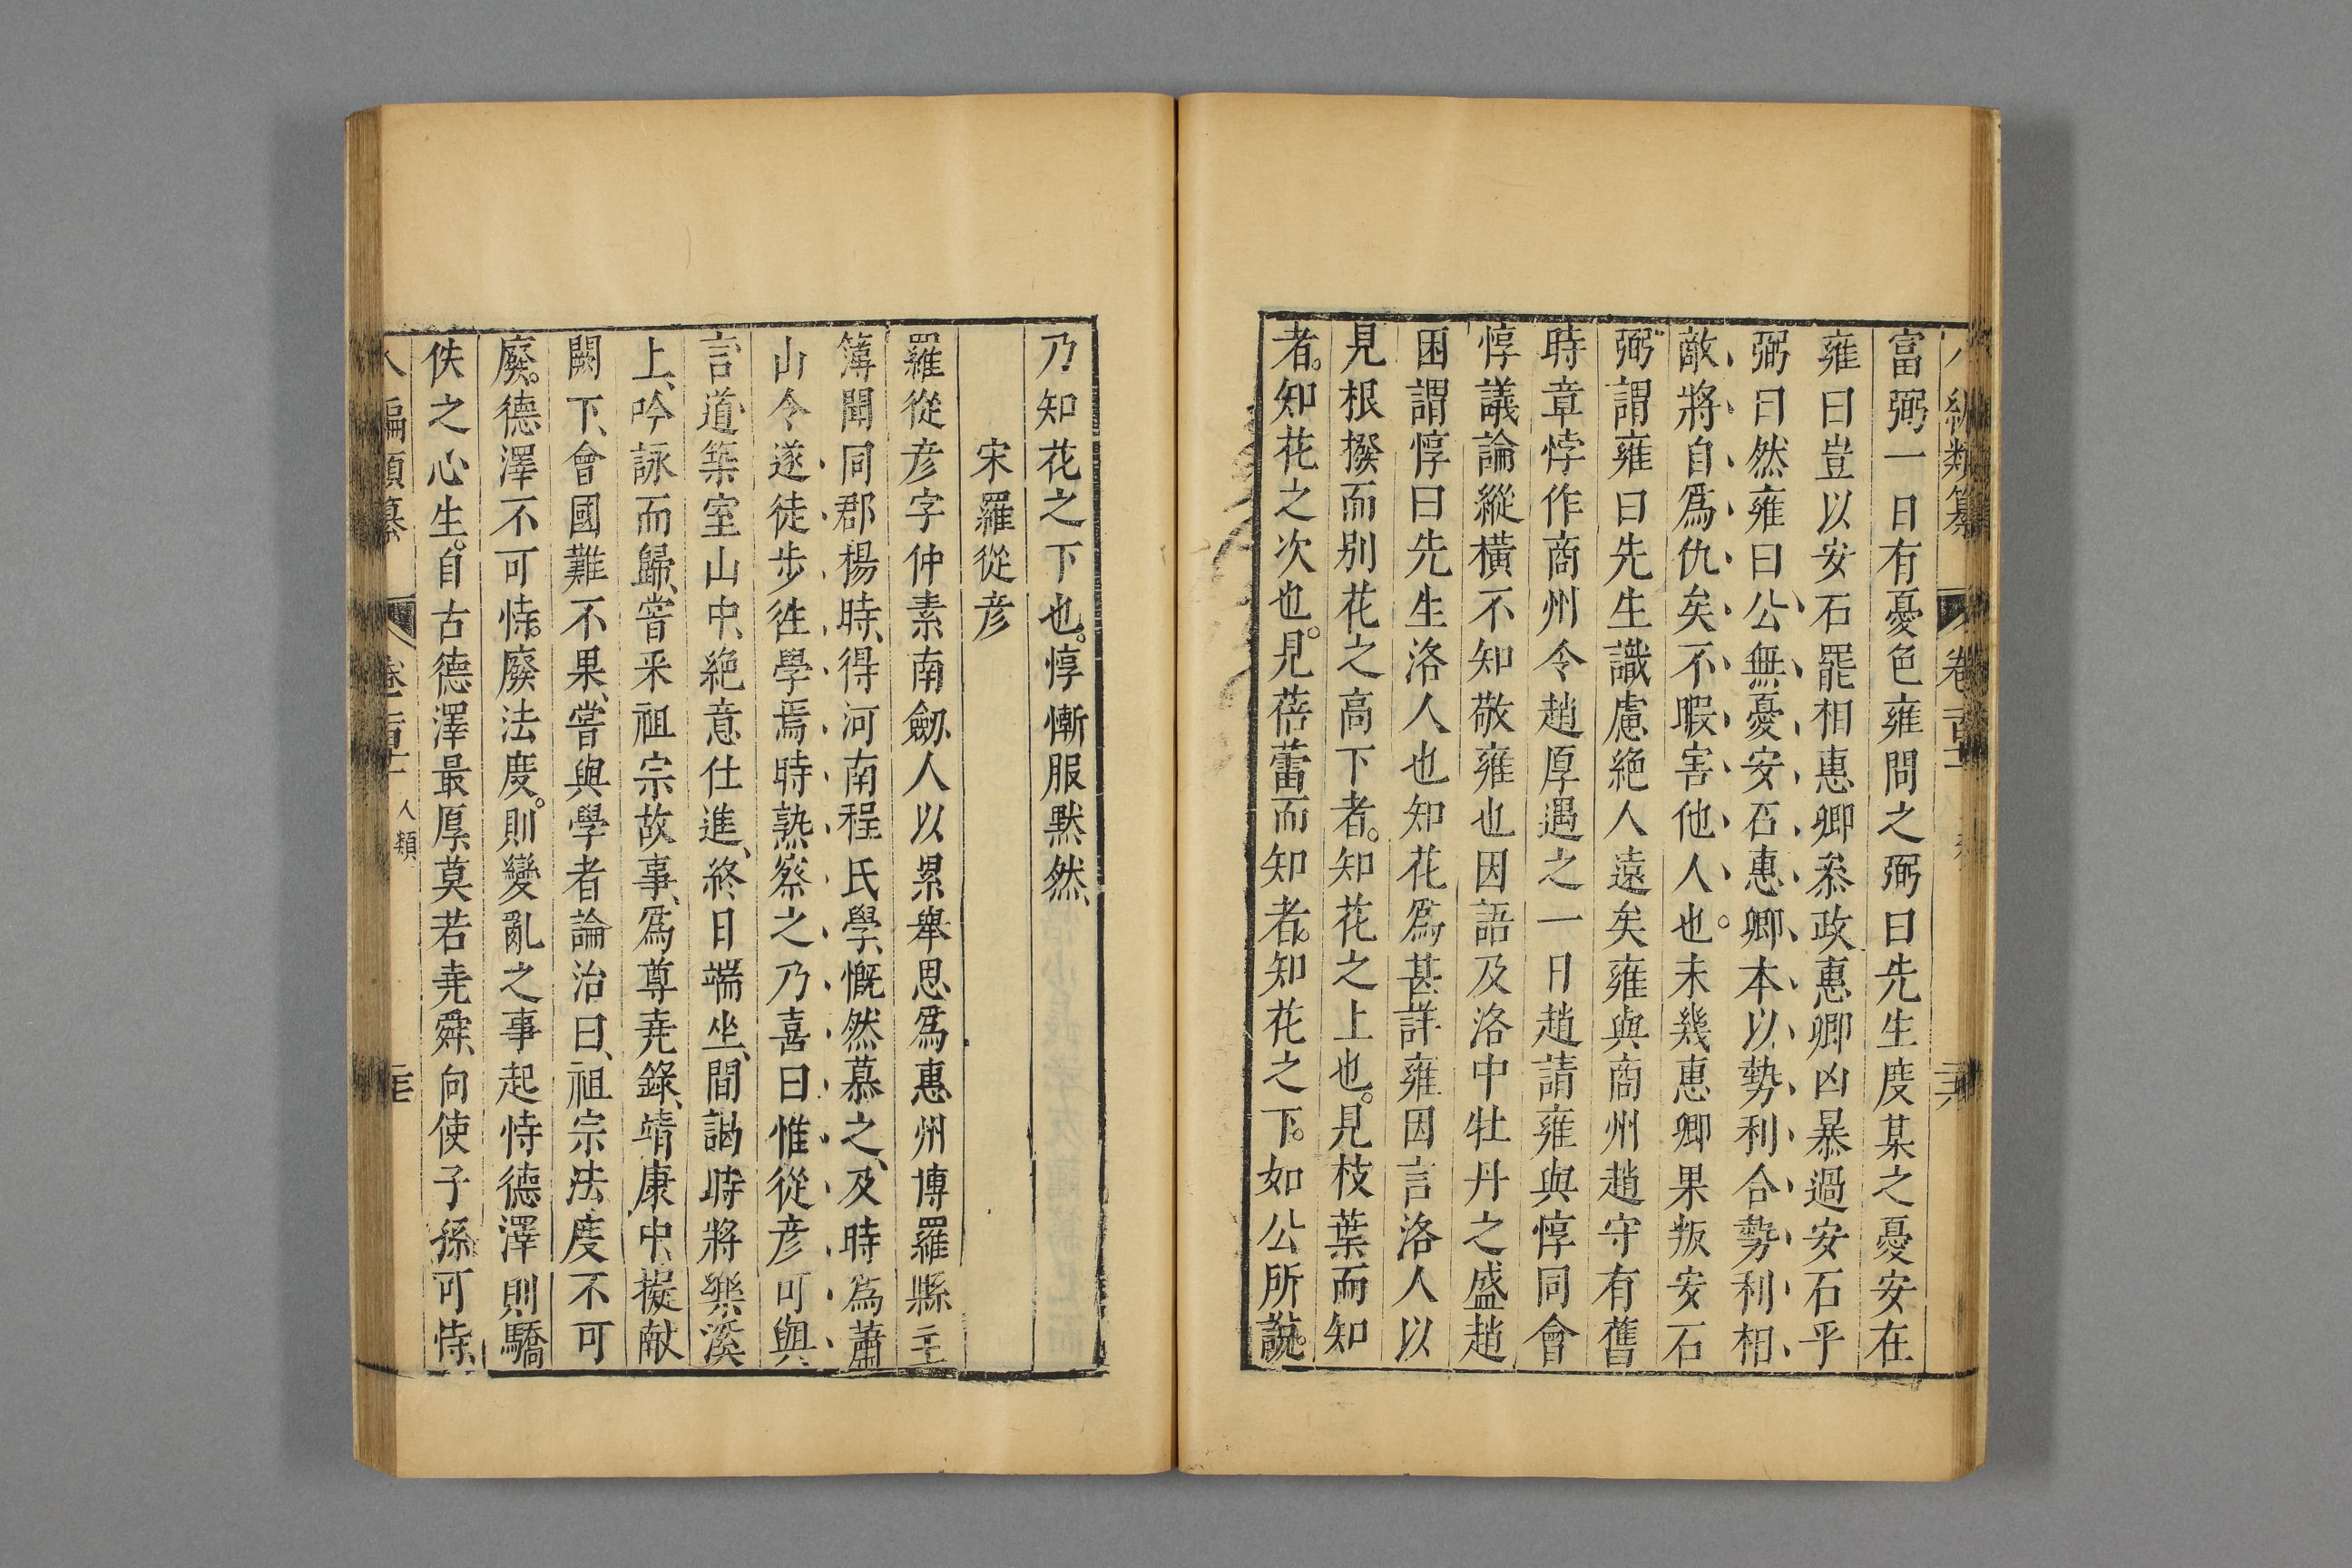 八編類纂 卷百十
富弼一日有憂色雍問之弼曰先生度某之憂安在
雍曰豈以安石罷相惠卿叅政惠卿凶暴過安石乎
弼曰然雍曰公無憂安石惠卿本以勢利合勢利相
敵將自爲仇矣不暇害他人也。未幾惠卿果叛安石
弼謂雍曰先生識慮絶人遠矣雍與商州趙守有舊
時章惇作商州令趙厚遇之一日趙請雍與惇同會
惇議論縱橫不知敬雍也因語及洛中牡丹之盛趙
因謂惇曰先生洛人也知花爲甚詳雍因言洛人以
見根撥而别花之高下者。知花之上也。見枝葉而知
者。知花之次也。見蓓蕾而知者。知花之下。如公所說。
乃知花之下也。惇慚服默然、
宋羅從彦
羅從彦字仲素南劒人以累舉恩爲惠州博羅縣主
簿聞同郡楊時、得河南程氏學、慨然慕之、及時爲蕭
山令遂徒步徃學焉時熟察之乃喜曰惟從彦可與
言道築室山中、絶意仕進、終日端坐、間謁時將樂溪
上、吟詠而歸、嘗釆祖宗故事、爲尊堯錄、靖康中、擬献
闕下、會國難不果、嘗與學者論治曰、祖宗法度不可
廢。德澤不可恃。廢法度。則變亂之事起恃德澤則驕
佚之心生。自古德澤最厚莫若堯舜、向使子孫可恃、
八編類纂 卷百十 人類